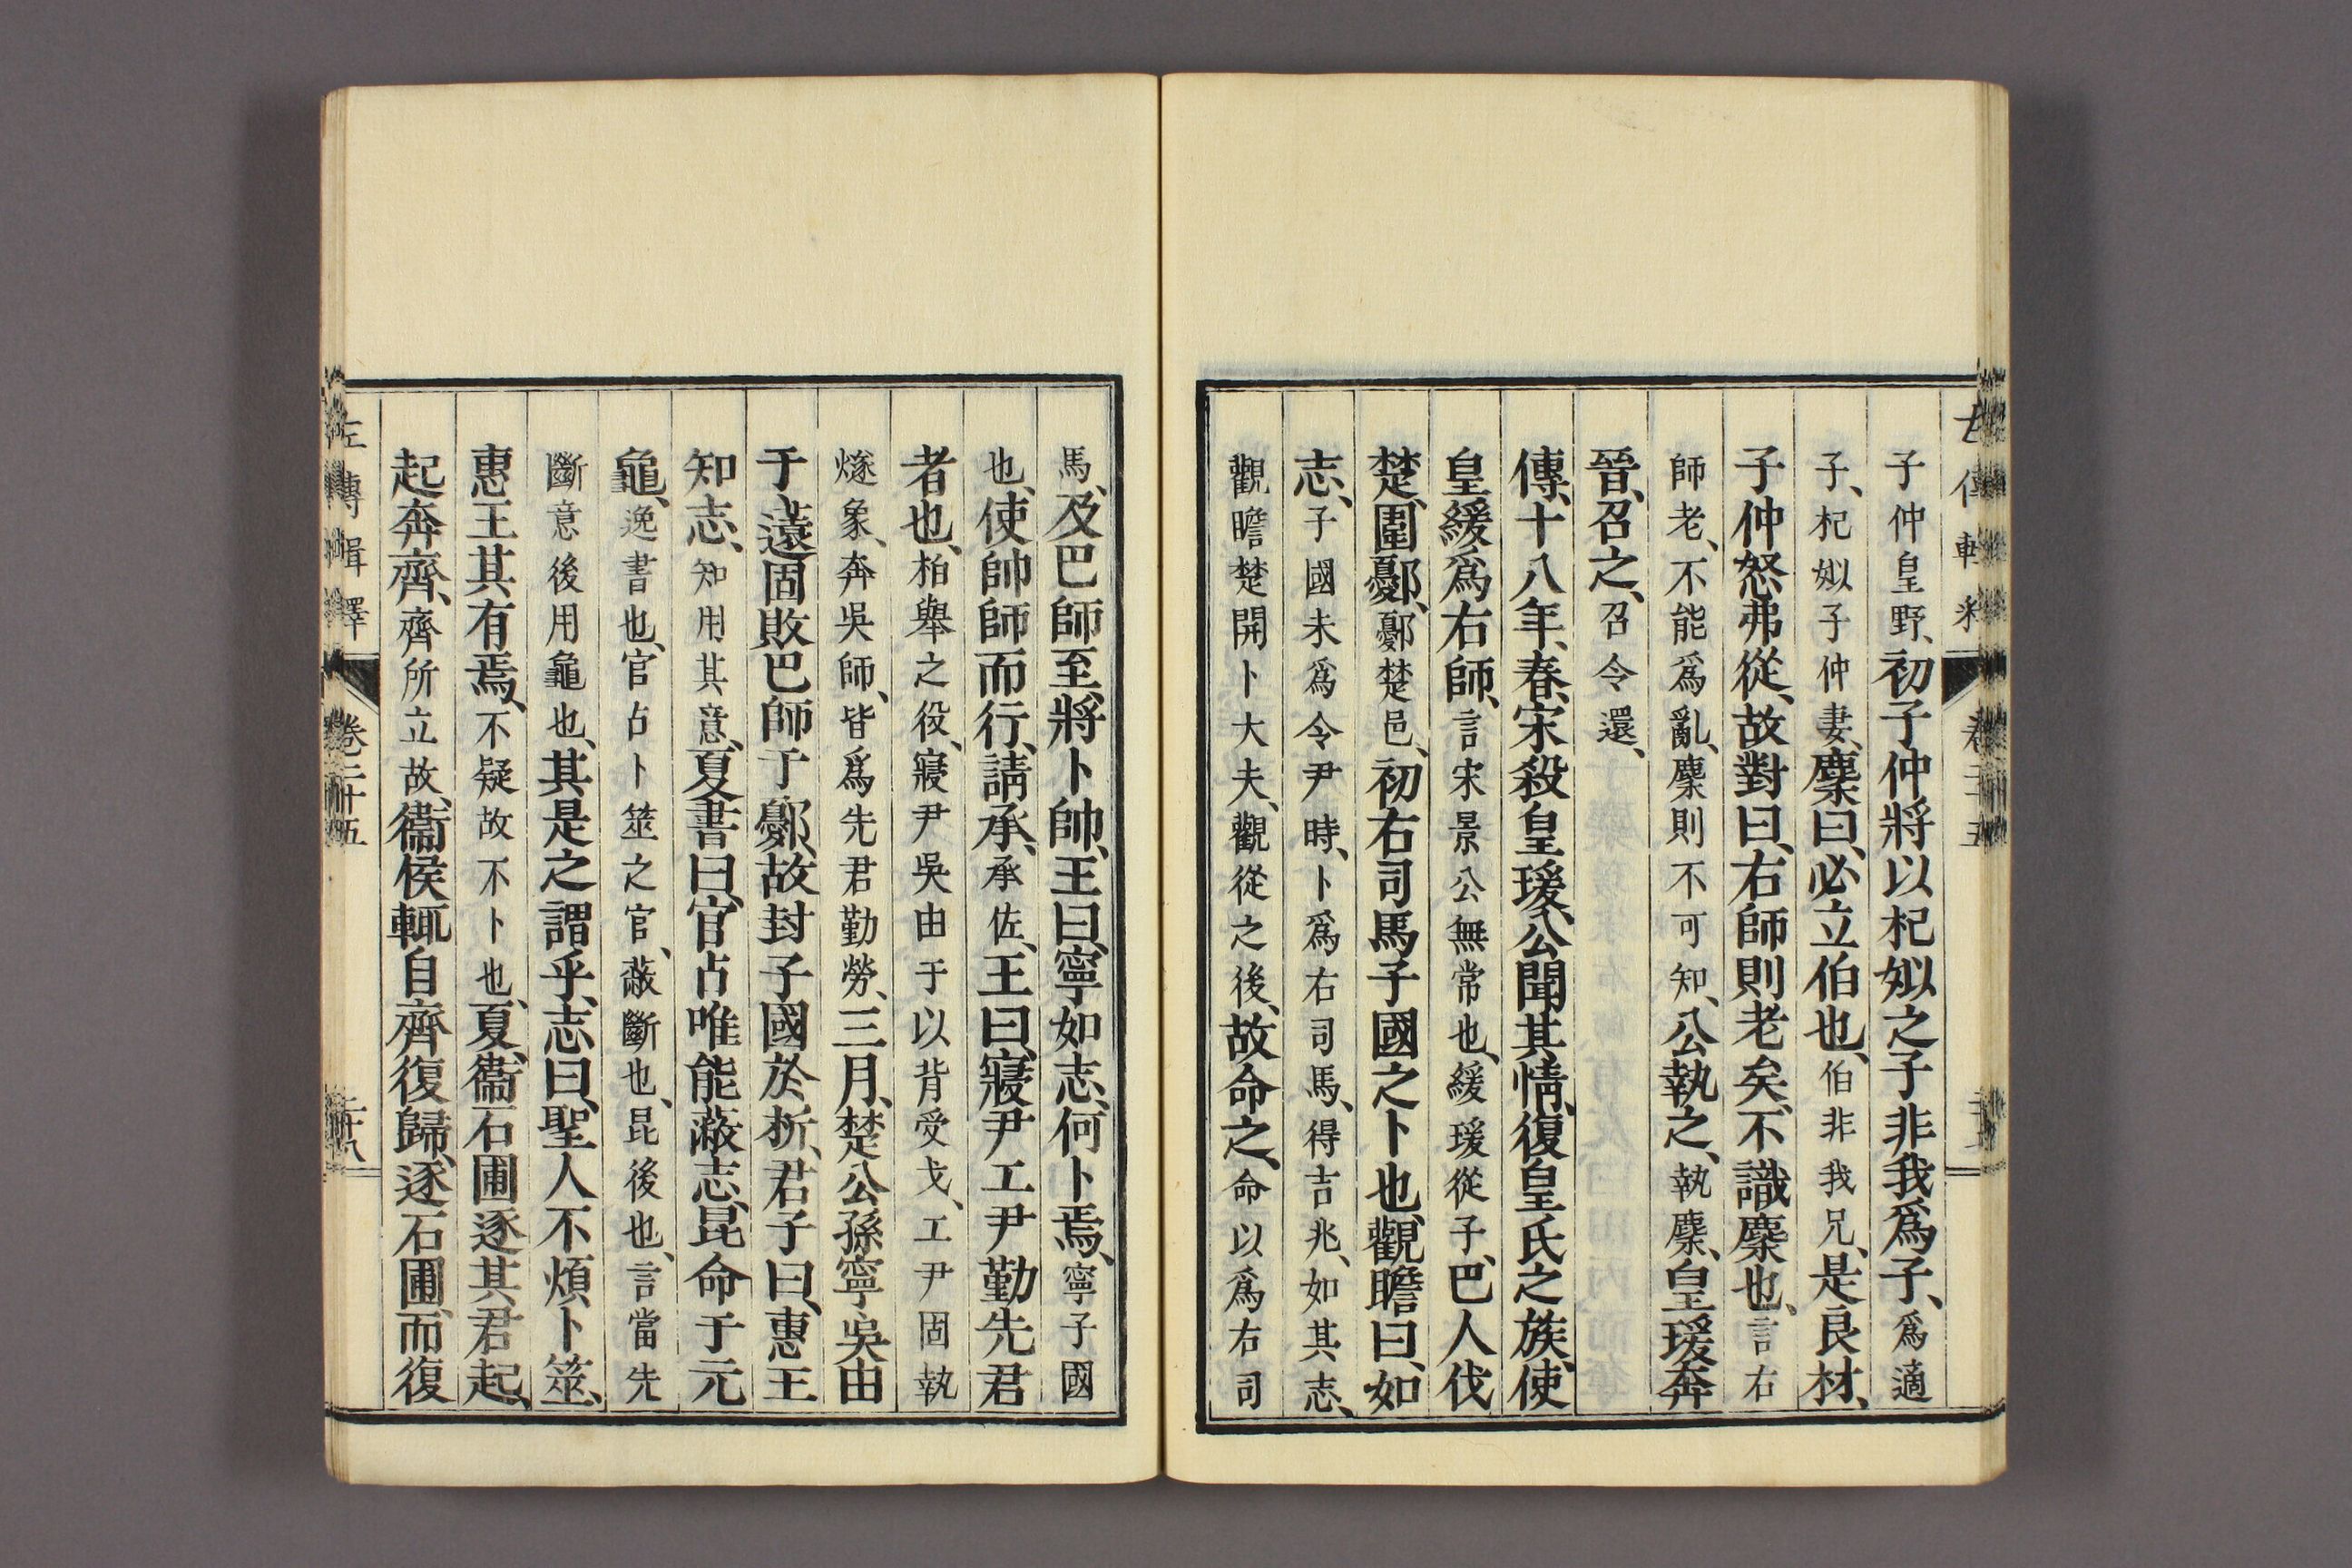 子仲皇野、初子仲將以杞姒之子非我爲子、爲適
子、杞姒子仲妻、麇曰、必立伯也、伯非我兄、是良材、
子仲怒弗從、故對曰、右師則老矣、不識麇也、言右
師老、不能爲亂、麇則不可知、公執之、執麇、皇瑗奔
晉、召之、召令還、
傳、十八年、春、宋殺皇瑗、公聞其情、復皇氏之族、使
皇緩爲右師、言宋景公無常也、緩瑗從子、巴人伐
楚、圍鄾、鄾楚邑、初右司馬子國之卜也、觀瞻曰、如
志、子國未爲令尹時、卜爲右司馬、得吉兆、如其志、
觀瞻楚開卜大夫、觀從之後、故命之、命以爲右司
馬、及巴師至、將卜帥、王曰、寧如志、何卜焉、寧子國
也、使帥師而行、請承、承佐、王曰、寢尹工尹勤先君
者也、柏舉之役、寢尹吳由于以背受戈、工尹固執
燧象、奔吳師、皆爲先君勤勞、三月、楚公孫寧吳由
于薳固敗巴師于鄾、故封子國於析、君子曰、惠王
知志、知用其意、夏書曰、官占唯能蔽志、昆命于元
龜、逸書也、官占卜筮之官、蔽斷也、昆後也、言當先
斷意後用龜也、其是之謂乎、志曰、聖人不煩卜筮、
惠王其有焉、不疑故不卜也、夏、衞石圃逐其君起、
起奔齊、齊所立故、衞侯輒自齊復歸、逐石圃、而復
左傳輯釋 卷二十五 二十八